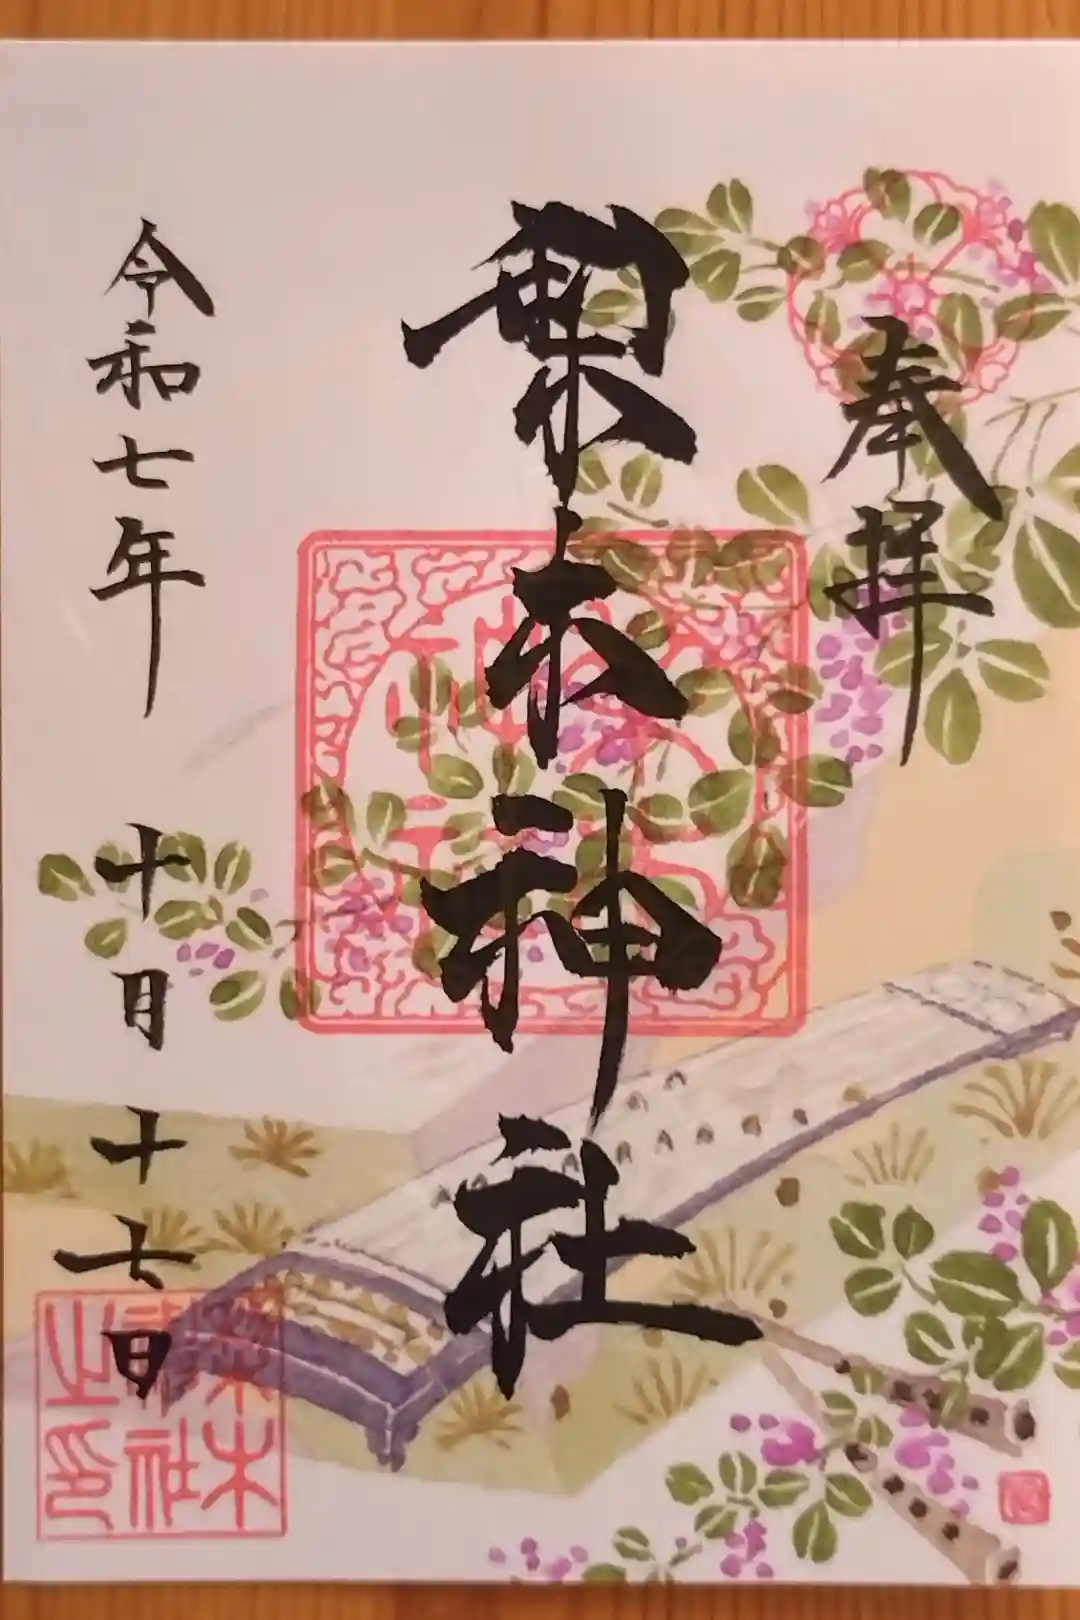 奉拝
梨木神社
令和七年 十月 十七日
梨木
神社
之印